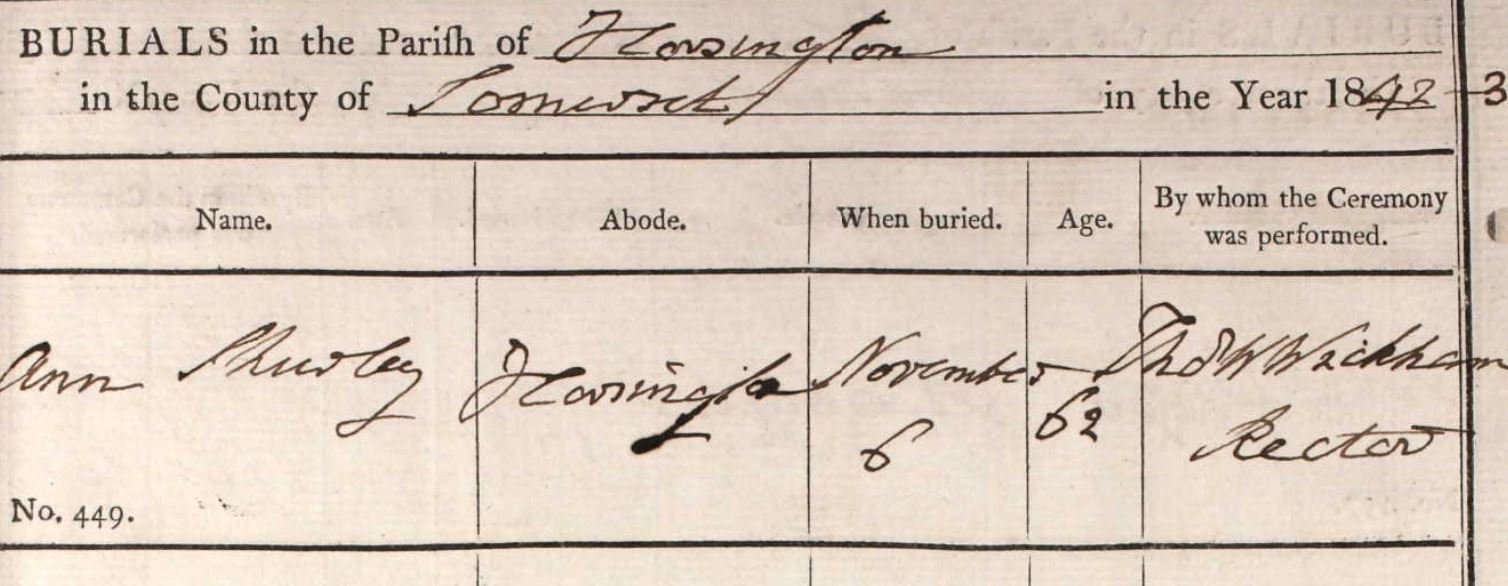 BURIALS in the Pariſh of Horsington
in the County of Somerset in the Year 1842-3
Name. Abode. When buried. Age. By whom the Ceremony was performed.
Ann Horsington November 62 Thos W Wickham
6 Rector
No. 449.